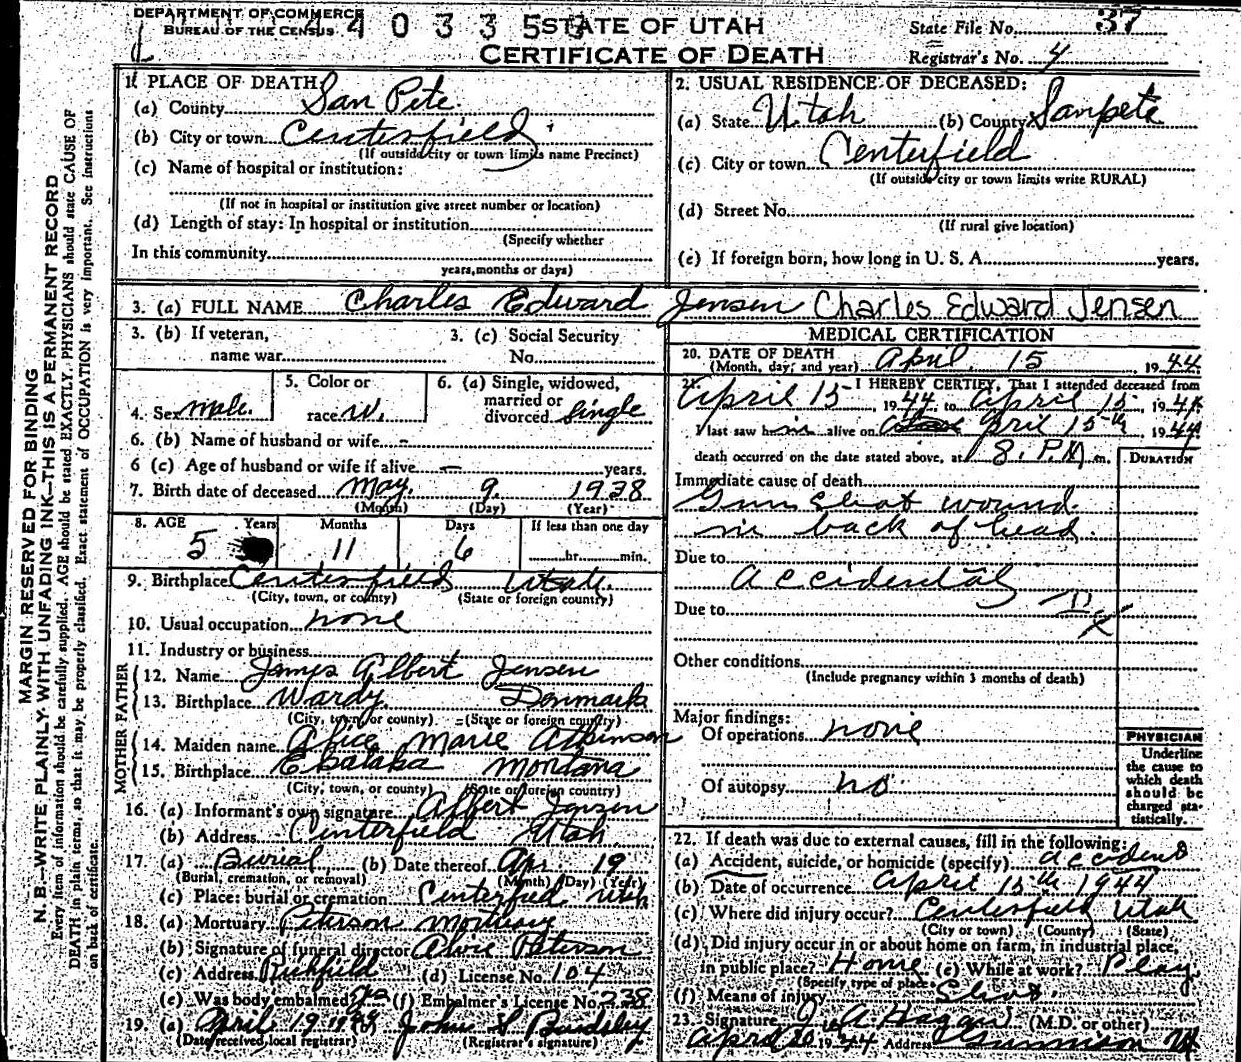 DEPARTMENT OF COMMERCE
BUREAU OF THE CENSUS
4 0 3 3 5
STATE OF UTAH
CERTIFICATE OF DEATH
State File No. 37
Registrar's No. 4
MARGIN RESERVED FOR BINDING
N. B.—WRITE PLAINLY WITH UNFADING INK—THIS IS A PERMANENT RECORD
Every item of information should be carefully supplied. AGE should be stated EXACTLY. PHYSICIANS should state CAUSE OF
DEATH in plain terms, so that it may be properly classified. Exact statement of OCCUPATION is very important. See instructions
on back of certificate.
1. PLACE OF DEATH:
(a) County San Pete
(b) City or town Centerfield
(If outside city or town limits name Precinct)
(c) Name of hospital or institution:
(If not in hospital or institution give street number or location)
(d) Length of stay: In hospital or institution
(Specify whether
In this community
years, months or days)
2. USUAL RESIDENCE OF DECEASED:
(a) State Utah (b) County Sanpete
(c) City or town Centerfield
(If outside city or town limits write RURAL)
(d) Street No.
(If rural give location)
(e) If foreign born, how long in U. S. A. years.
3. (a) FULL NAME Charles Edward Jensen Charles Edward Jensen
3. (b) If veteran,
name war
3. (c) Social Security
No.
4. Sex male.
5. Color or
race W.
6. (a) Single, widowed,
married or
divorced Single
6. (b) Name of husband or wife –
6 (c) Age of husband or wife if alive — years.
7. Birth date of deceased May. 9. 1938
(Month) (Day) (Year)
8. AGE Years Months Days If less than one day
5 11 6 hr. min.
9. Birthplace Centerfield Utah.
(City, town, or county) (State or foreign country)
10. Usual occupation none
11. Industry or business
FATHER
12. Name James Albert Jensen
13. Birthplace Denmark
(City, town, or county) (State or foreign country)
MOTHER
14. Maiden name Alice Marie Atkinson
15. Birthplace Ekalaka Montana
(City, town, or county) (State or foreign country)
16. (a) Informant's own signature Albert Jensen
(b) Address Centerfield Utah
17. (a) Burial (b) Date thereof Apr. 19
(Burial, cremation, or removal) (Month) (Day) (Year)
(c) Place: burial or cremation Centerfield Utah
18. (a) Mortuary Peterson Mortuary
(b) Signature of funeral director Peterson
(c) Address Richfield (d) License No. 104
(e) Was body embalmed? yes (f) Embalmer's License No. 238
19. (a) April 19 1944 John S.
(Date received local registrar) (Registrar's signature)
MEDICAL CERTIFICATION
20. DATE OF DEATH
(Month, day, and year) April 15 1944
21. I HEREBY CERTIFY, That I attended deceased from
April 15 1944 to April 15 1944
I last saw him alive on April 15th 1944
death occurred on the date stated above, at 8. P.M. m.
DURATION
Immediate cause of death
Gun shot wound
in back of head
Due to
accidental
Due to
Other conditions
(Include pregnancy within 3 months of death)
Major findings:
Of operations none
Of autopsy no.
PHYSICIAN
Underline
the cause to
which death
should be
charged sta-
tistically.
22. If death was due to external causes, fill in the following:
(a) Accident, suicide, or homicide (specify) accident
(b) Date of occurrence April 15th 1944
(c) Where did injury occur? Centerfield Utah
(City or town) (County) (State)
(d) Did injury occur in or about home on farm, in industrial place,
in public place? Home (e) While at work? Play
(Specify type of place)
(f) Means of injury Shot.
23. Signature J. A. Hagan (M.D. or other)
April 20 1944 Address Gunnison